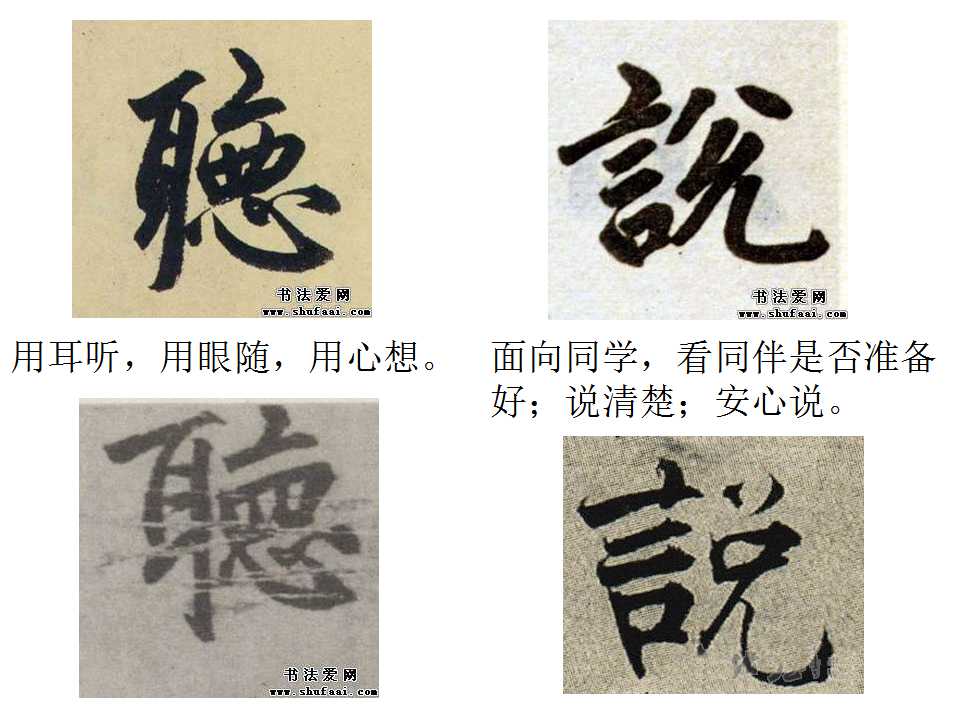 聽
書法愛网
www.shufaai.com
用耳听，用眼随，用心想。
聽
书法爱网
www.shufaai.com
説
书法爱网
www.shufaai.com
面向同学，看同伴是否准备
好；说清楚；安心说。
説